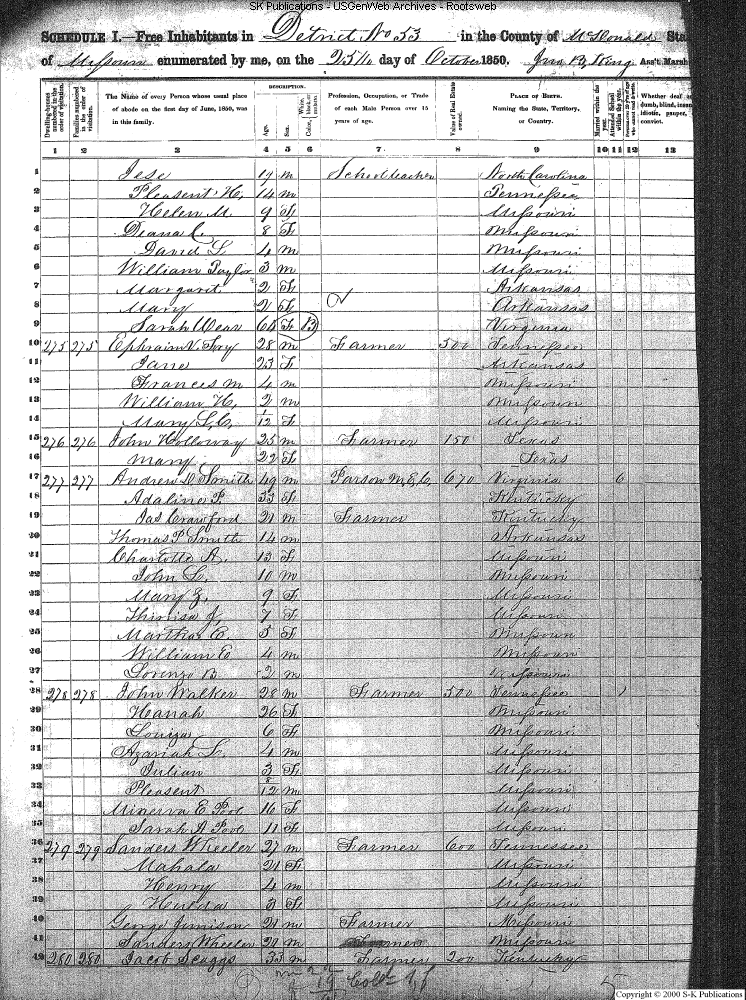 SK Publications - USGenWeb Archives - Rootsweb
SCHEDULE I.—Free Inhabitants in District No 53 in the County of McDonald Sta
of Missouri enumerated by me, on the 25th day of October 1850. Jno B, King Ass't Marsh
Dwelling-houses numbered in the order of visitation.
Families numbered in the order of visitation.
The Name of every Person whose usual place of abode on the first day of June, 1850, was in this family.
DESCRIPTION.
Age.
Sex.
Color,
Profession, Occupation, or Trade of each Male Person over 15 years of age.
Value of Real Estate owned.
PLACE OF BIRTH. Naming the State, Territory, or Country.
Married within the year.
Attended School within the year.
Whether deaf dumb, blind, insane idiotic, pauper, convict.
1 2 3 4 5 6 7 8 9 10 11 12 13
1 Jese 17 m School teacher North Carolina
2 Pleasent H, 14 m Tennessee
3 Helen M. 9 F Missouri
4 Deana C. 8 F Missouri
5 David L 4 m Missouri
6 William Taylor 3 m Missouri
7 Margaret 2 F Arkansas
8 Mary 2 F Arkansas
9 Sarah Wear 64 F B Virginia
10 275 275 Ephraim V. 28 m Farmer 500 Tennessee
11 Jane 23 F Arkansas
12 Frances M 4 m Missouri
13 William H, 2 m Missouri
14 Mary L, C, 1/12 F Missouri
15 276 276 John Holloway 25 m Farmer 150 Texas
16 Mary 22 F Texas
17 277 277 Andrew D Smith 49 m Parson M, E, C, 670 Virginia 6
18 Adaline P. 33 F Kentucky
19 Jas Crawford 21 m Farmer Kentucky
20 Thomas P Smith 14 m Arkansas
21 Charlotte A. 13 F Missouri
22 John L. 10 m Missouri
23 Mary Z, 9 F Missouri
24 7 F Missouri
25 Martha E. 5 F Missouri
26 William E 4 m Missouri
27 Lorenzo B 2 m Missouri
28 278 278 John Walker 28 m Farmer 500 Tennessee
29 Hanah 26 F Missouri
30 Louiza 6 F Missouri
31 Azariah L. 4 m Missouri
32 Julian 3 F Missouri
33 Pleasent 8/12 m Missouri
34 Minerva E Pool 16 F Missouri
35 Sarah A Pool 11 F Missouri
36 279 279 Sanders Wheeler 27 m Farmer 600 Tennessee
37 Mahala 21 F Missouri
38 Henry 4 m Missouri
39 3 F Missouri
40 George Jimison 21 m Farmer Missouri
41 Sanders Wheeler 20 m Missouri
42 280 280 Jacob Scaggs 33 m Farmer 200 Kentucky
Copyright © 2000 S-K Publications